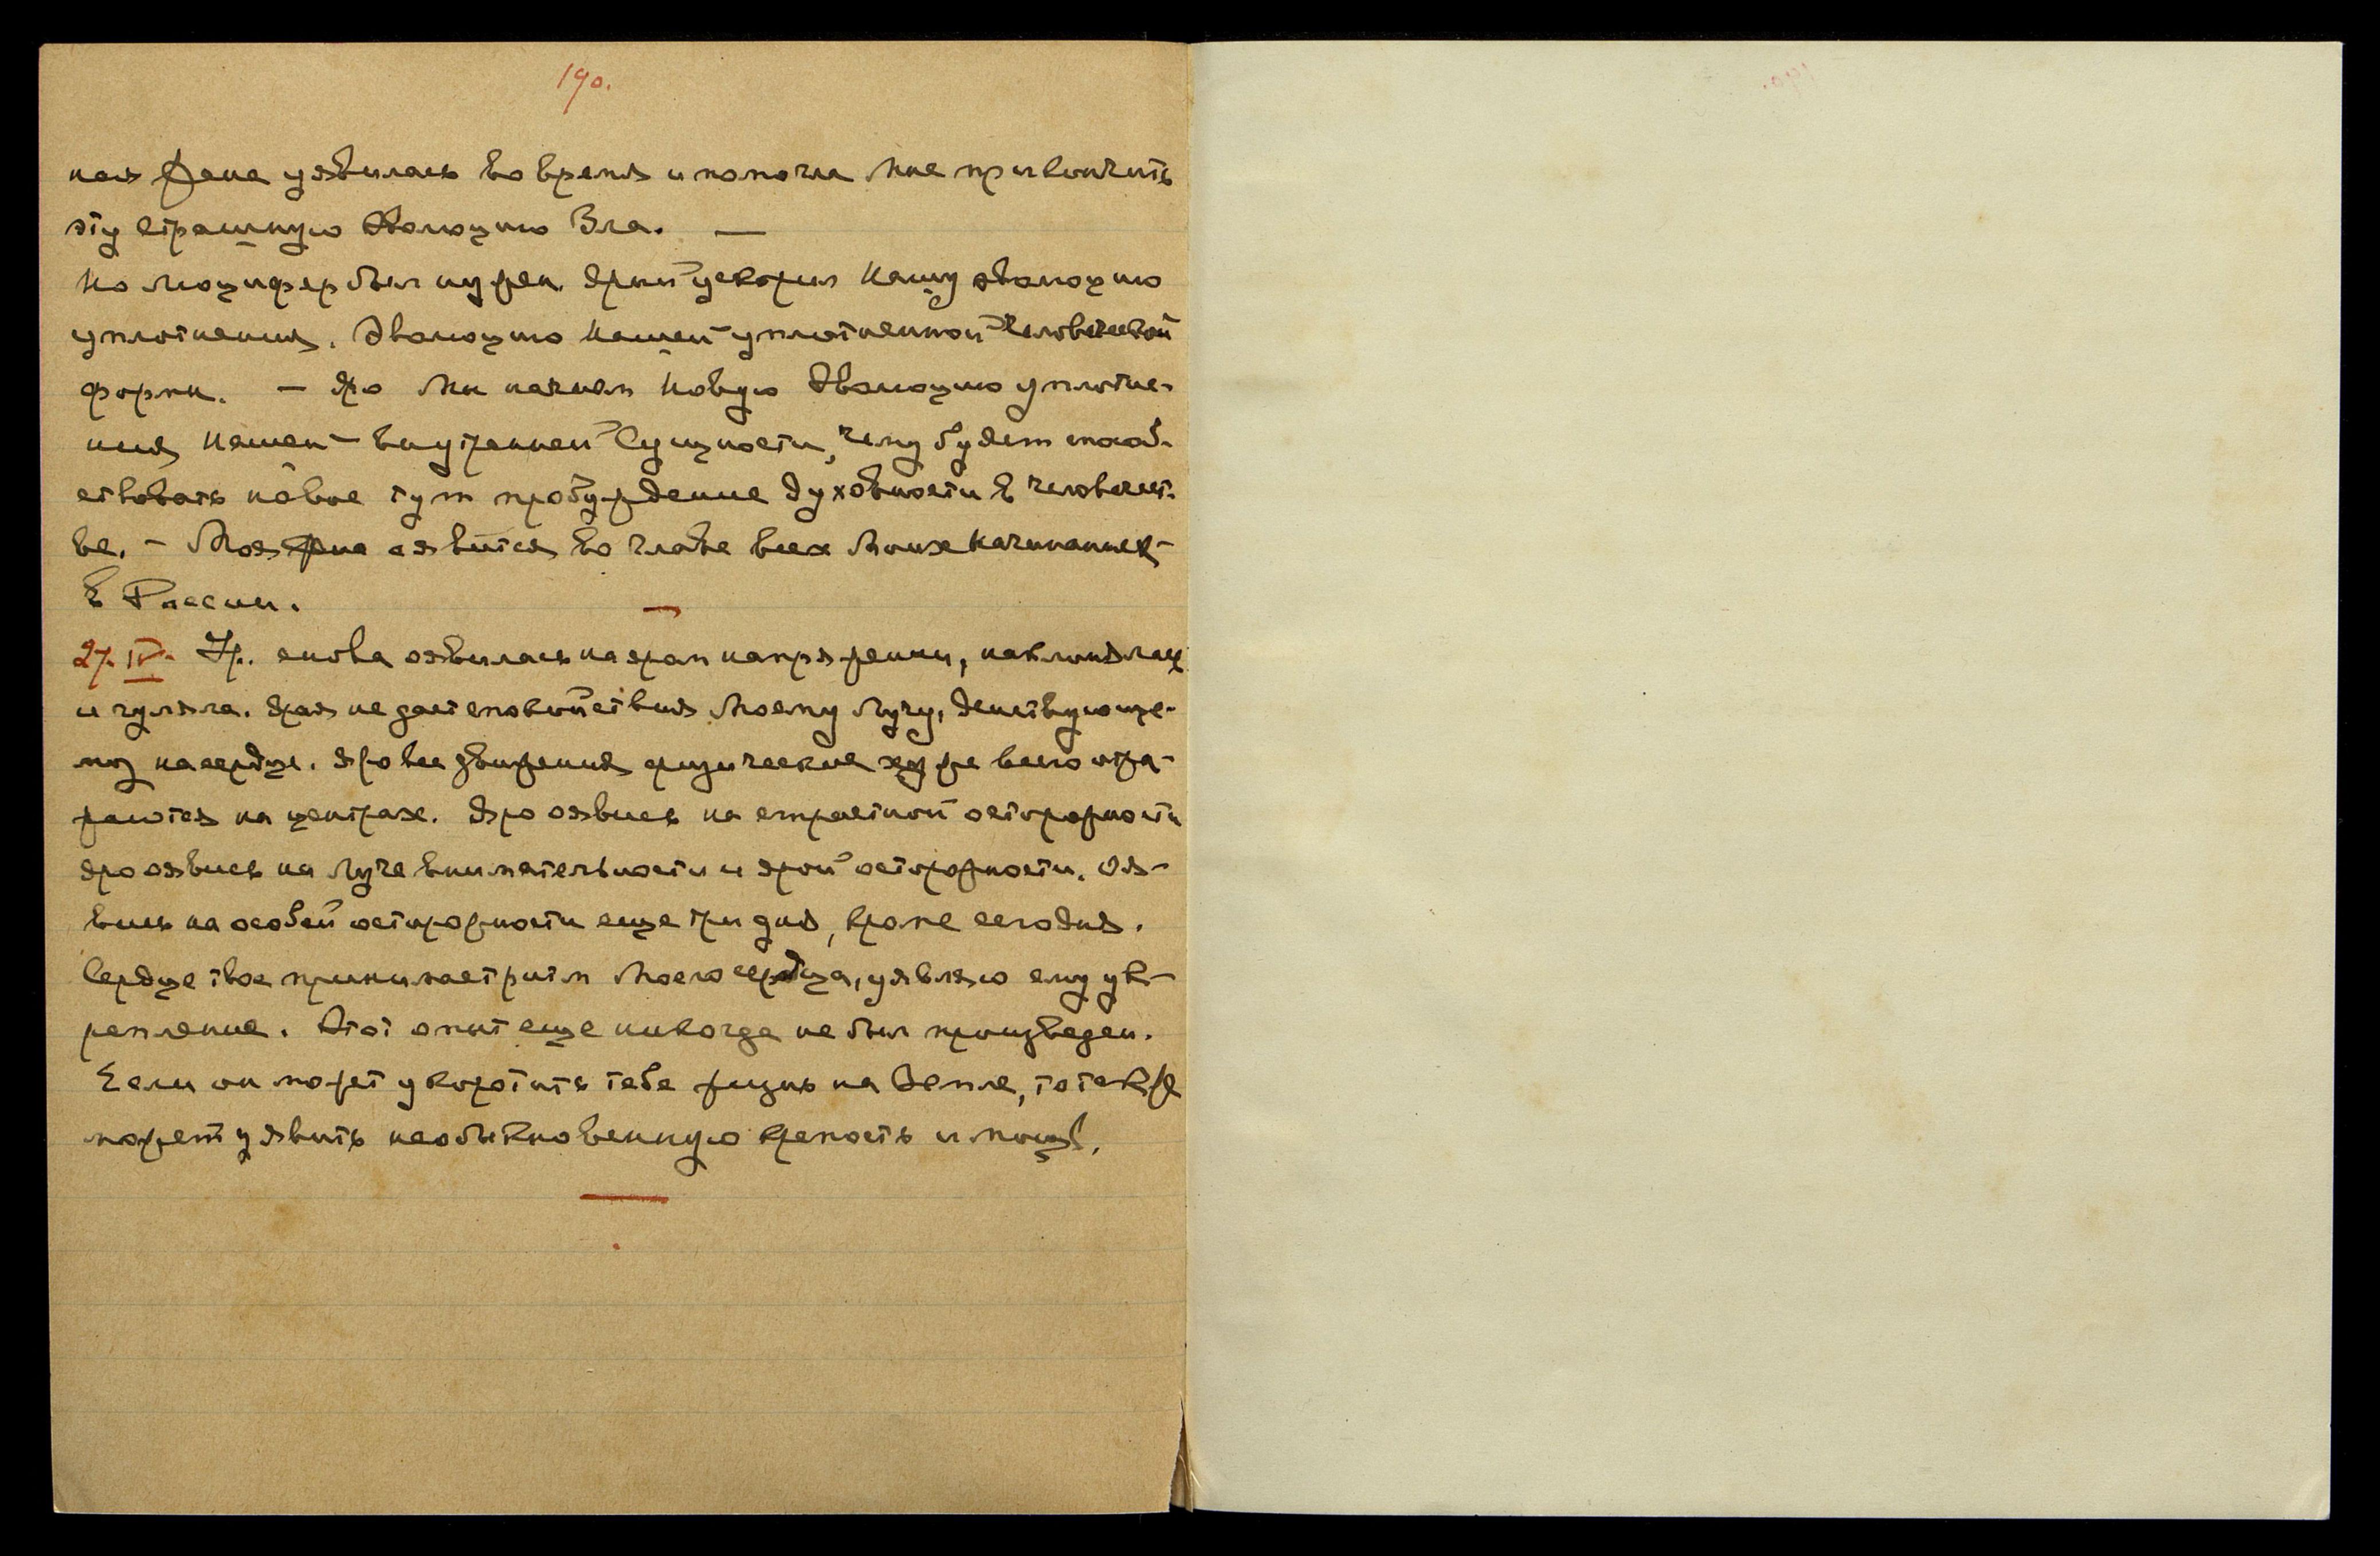 190.
ная Жена уявилась во время и помогла Мне прикончить
эту страшную Эволюцию Зла. —
Но Люцифер был нужен. Ярый ускорил Нашу эволюцию
уплотнения. Эволюцию Нашей уплотненной человеческой
формы. — Яро Мы начнем Новую Эволюцию уплотне-
ния Нашей внутренней Сущности, чему будет способ-
ствовать новое тут пробуждение духовности в человечест-
ве. — Моя Жена оявится во главе всех Моих Начинаний
в России.
27. IV. Ур. снова оявилась на яром напряжении, наклонялась
и гуляла. Ярая не дает спокойствия Моему Лучу, действующе-
му на сердце. Яро все движения физические хуже всего отра-
жаются на центрах. Яро оявись на страстной осторожности
яро оявись на Луче внимательности и ярой осторожности. Оя-
вись на особой осторожности еще три дня, кроме сегодня.
Сердце твое принимает ритм Моего сердца, уявляю ему ук-
репление. Этот опыт еще никогда не был произведен.
Если он может укоротить тебе жизнь на Земле, то также
может уявить необыкновенную крепость и мощь.